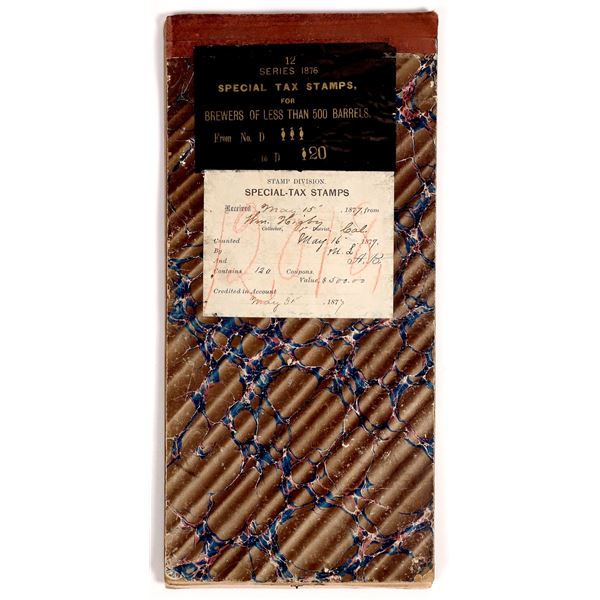 12
SERIES 1876
SPECIAL TAX STAMPS,
FOR
BREWERS OF LESS THAN 500 BARRELS.
From No. D 111
to D 120
STAMP DIVISION.
SPECIAL-TAX STAMPS
Received May 15", 1877, from
Wm. Higby
Collector, District, Cal.
Counted May 16", 1877.
By M. L.
And A. B.
Contains 120 Coupons.
Value, $500.00
Credited in Account
May 31, 1877